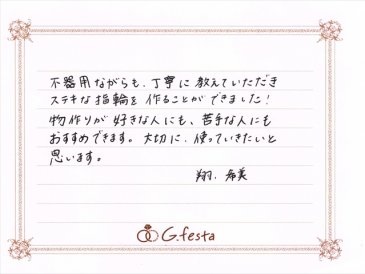 不器用ながらも、丁寧に教えていただき
ステキな指輪を作ることができました！
物作りが好きな人にも、苦手な人にも
おすすめできます。大切に、使っていきたいと
思います。
翔、希美
G.festa